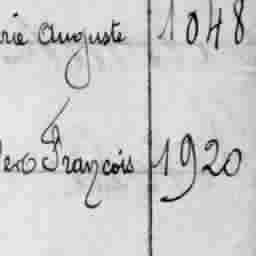 rie Auguste 1048
François 1920